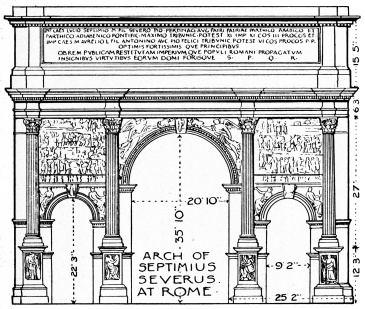 IMP CAES LVCIO SEPTIMIO M FIL SEVERO PIO PERTINACI AVG PATRI PATRIAE PARTHICO ARABICO ET
PARTHICO ADIABENICO PONTIFIC MAXIMO TRIBVNIC POTEST XI IMP XI COS III PROCOS ET
IMP CAES M AVRELIO L FIL ANTONINO AVG PIO FELICI TRIBVNIC POTEST VI COS PROCOS P P
OPTIMIS FORTISSIMIS QVE PRINCIPIBVS
OB REM PVBLICAM RESTITVTAM IMPERIVM QVE POPVLI ROMANI PROPAGATVM
INSIGNIBVS VIRTVTIBVS EORVM DOMI FORISQVE S. P. Q. R.
15' 5"
6' 3"
20' 10"
35' 10"
27'
22' 3"
ARCH OF
SEPTIMIUS
SEVERUS
AT ROME
9' 2"
12' 3"
25' 2"